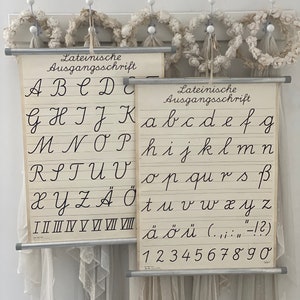 Lateinische
Ausgangsschrift
A B C D E
G H I J K
M N O P
R S T U V
X Y Z Ä Ö
I II III IV V VI VII VIII
Lateinische
Ausgangsschrift
a b c d e f g
h i j k l m n
o p q u r s ß
t u v w x y z
ä ö ü (.,;:„“–!?)
1 2 3 4 5 6 7 8 9 0